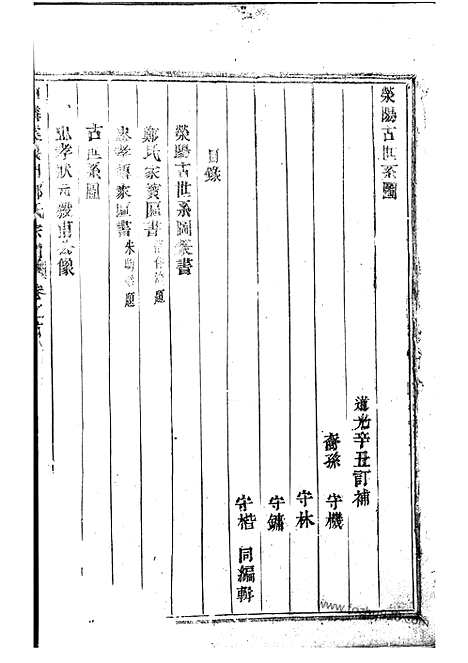 滎陽古世系圖
道光辛丑訂補
裔孫 守機
守林
守鏞
守楷 同編輯
目錄
滎陽古世系圖篆書
鄭氏家寶區書 題
忠孝傳家區書 朱 題
古世系圖
忠孝狀元 公像
鄭氏宗